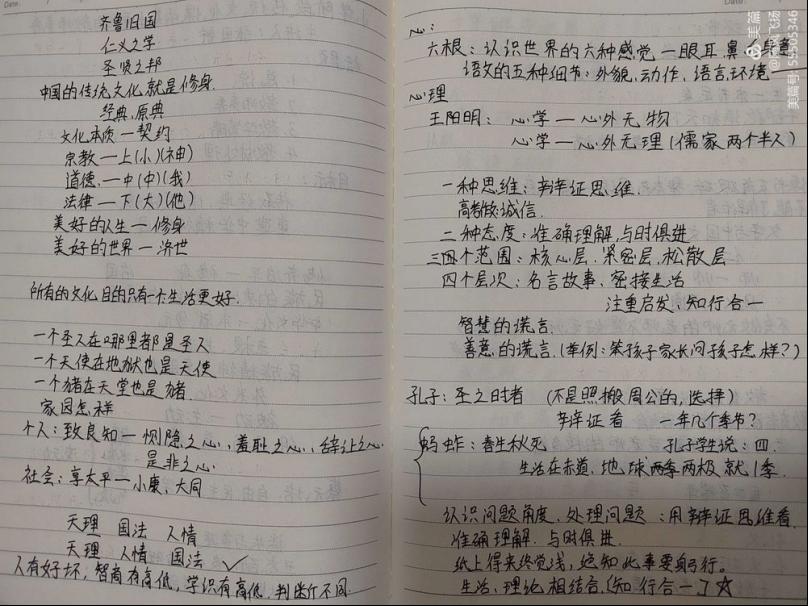 齐鲁旧国
仁义之学
圣贤之邦
中国的传统文化就是修身.
经典.原典
文化本质—契约
宗教—上(小)(神)
道德.—中(中)(我)
法律—下(大)(他)
美好的人生—修身
美好的世界—济世
所有的文化目的只有一个:生活更好.
一个圣人在哪里都是圣人
一个天使在地狱也是天使
一个猪在天堂也是猪.
家园怎样
个人:致良知—恻隐之心,羞耻之心,辞让之心
是非之心.
社会:享太平—小康,大同
天理 国法 人情
天理 人情 国法 ✓
人有好坏,智商有高低,学识有高低,判断不同.
心:
六根:认识世界的六种感觉—眼耳鼻舌身意
语文的五种细节:外貌.动作.语言.环境—
心理
王阳明:心学—心外无物
心学—心外无理(儒家两个半人)
一种思维:辩证思维.
高考放:诚信.
二种态度:准确理解,与时俱进
三四个范围:核心层.紧密层.松散层
四个层次:名言故事,密接生活
注重启发,知行合一
智慧的谎言.
善意的谎言.(举例:笨孩子家长问孩子怎样?)
孔子:圣之时者 (不是照搬周公的,选择)
辩证看 一年几个季节?
蚂蚱:春生秋死 孔子学生说:四.
生活在赤道,地球两季两极就1季.
认识问题角度.处理问题:用辩证思维看.
准确理解.与时俱进.
纸上得来终觉浅,绝知此事要躬行.
生活、理论相结合.(知行合一)☆
美篇
美篇号:55505346